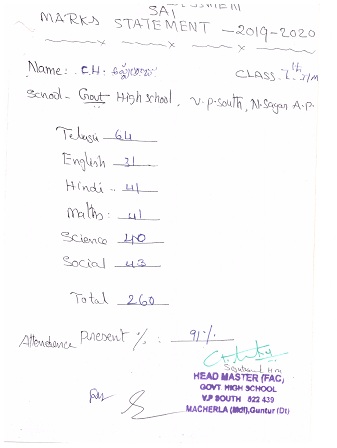 SAI
MARKS STATEMENT - 2019-2020
Name: CH.
CLASS:
School - Govt High school, V.P.South, N.Sagar A.P.
Telugu 64
English 31
Hindi - 41
Maths: 41
Science 40
Social 43
Total 260
Attendence Present %: 91%
HEAD MASTER (FAC)
GOVT. HIGH SCHOOL
V.P SOUTH 522 439
MACHERLA (Mdl), Guntur (Dt)